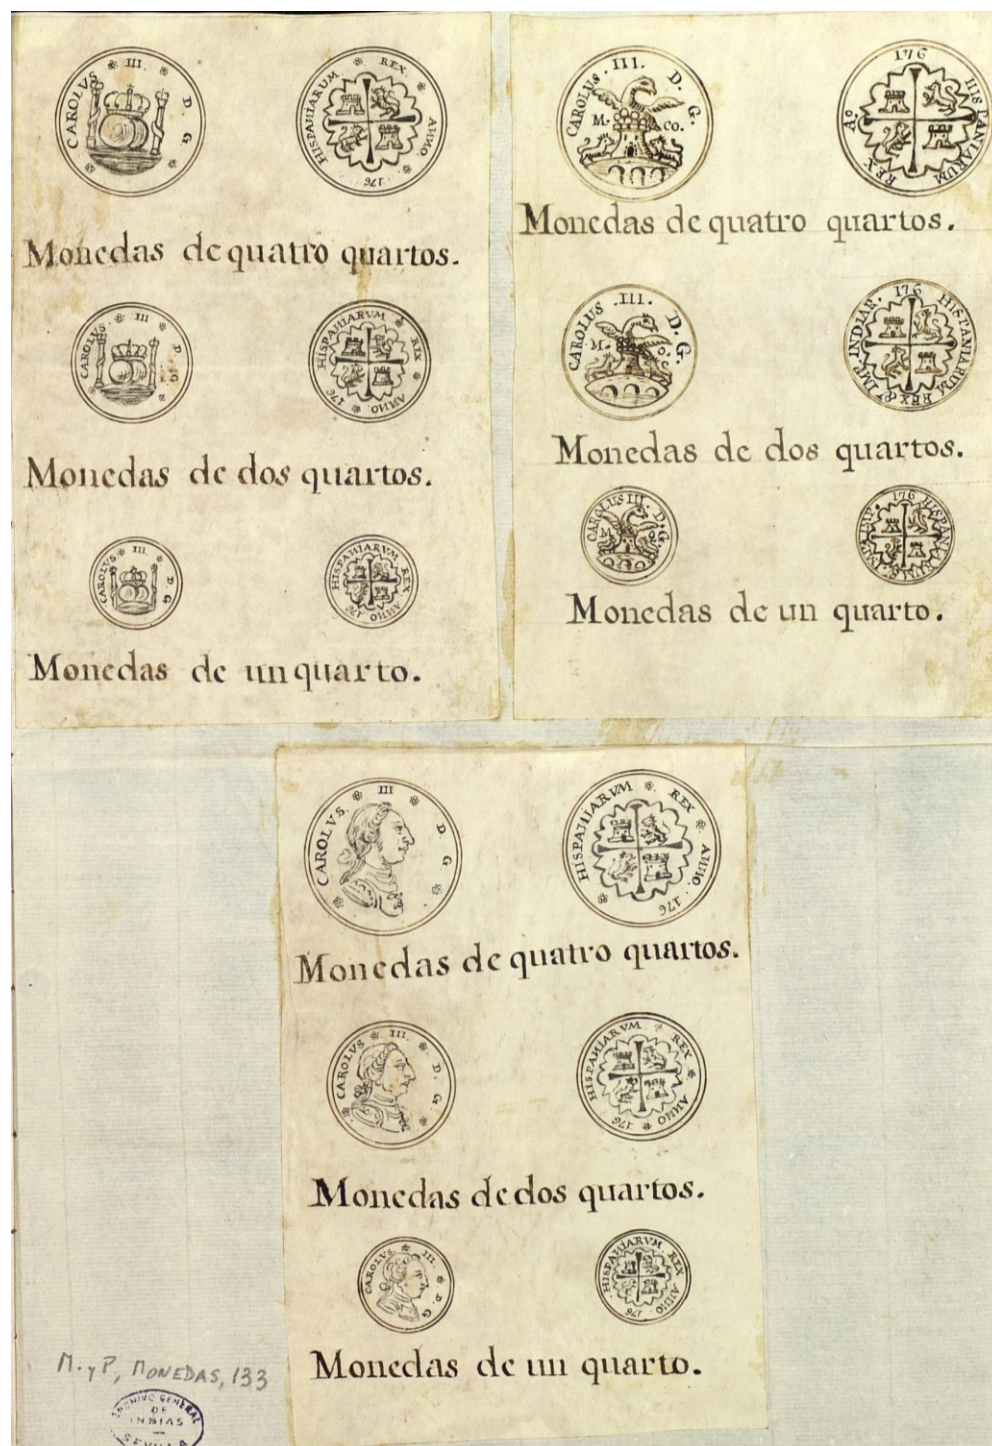 CAROLVS III. D. G
HISPANIARUM REX. ANNO. 176
Monedas de quatro quartos.
CAROLVS. III D. G
HISPANIARVM REX ANNO. 176
Monedas de dos quartos.
CAROLVS III. D G
HISPANIARVM REX ANNO 176
Monedas de un quarto.
CAROLUS. III. D. G.
M. CO.
176 HISPANIARUM REX Aº
Monedas de quatro quartos.
CAROLUS .III. D. G.
M.
176 HISPANIARUM REX & IMP. INDIAR.
Monedas de dos quartos.
CAROLUS III. D. G.
176 HISPANIARUM
Monedas de un quarto.
CAROLVS. III D G
HISPANIARVM REX ANNO. 176
Monedas de quatro quartos.
CAROLVS III. D. G.
HISPANIARVM. REX ANNO 176
Monedas de dos quartos.
CAROLVS III. D. G
HISPANIARVM REX ANNO. 176
Monedas de un quarto.
M. y P, MONEDAS, 133
ARCHIVO GENERAL
DE
INDIAS
SEVILLA